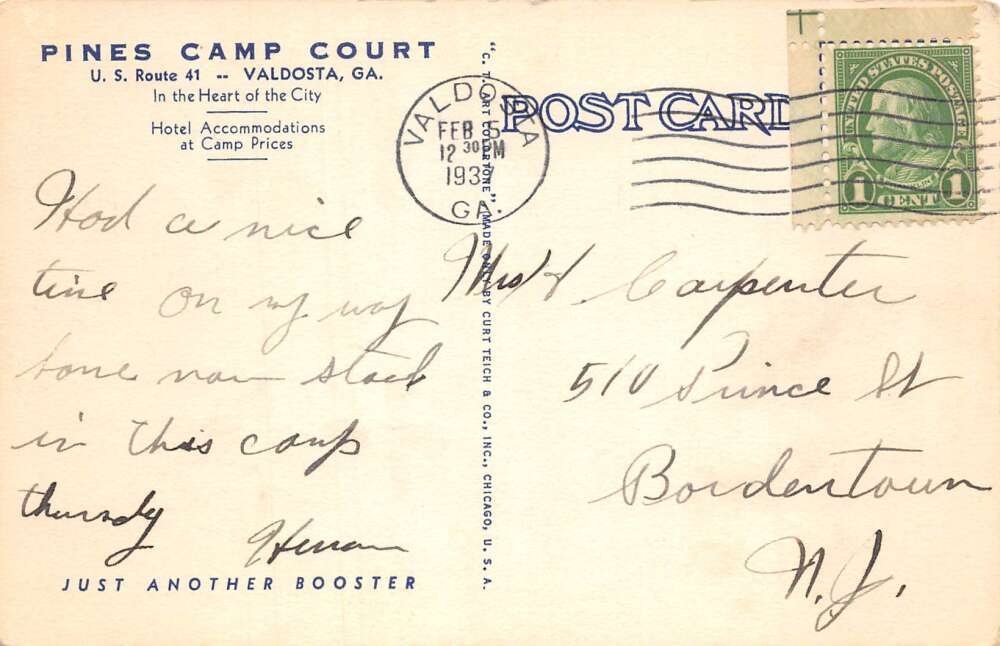 PINES CAMP COURT
U. S. Route 41 -- VALDOSTA, GA.
In the Heart of the City
Hotel Accommodations
at Camp Prices
Had a nice
time on my way
home now stack
in this camp
thursdy
Herman
JUST ANOTHER BOOSTER
"C. T. ART COLORTONE" MADE ONLY BY CURT TEICH & CO., INC., CHICAGO, U. S. A.
POST CARD
VALDOSTA
FEB 5
12 30 PM
1937
GA.
UNITED STATES POSTAGE
1 CENT 1
Mrs H Carpenter
510 Prince St
Bordentown
N.J.